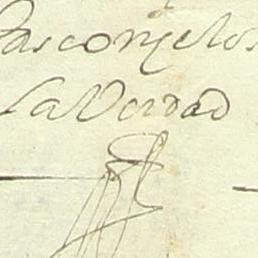 Pasconzelos
la Verdad